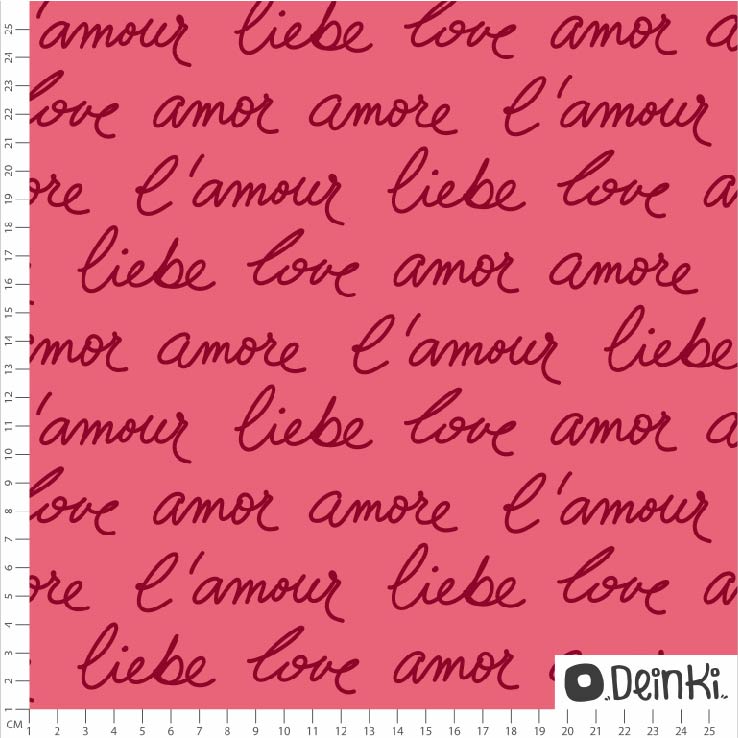 'amour liebe love amor a
love amor amore l'amour
ore l'amour liebe love a
liebe love amor amore
mor amore l'amour liebe
'amour liebe love amor a
love amor amore l'amour
ore l'amour liebe love a
liebe love amor
DeinKi
CM
1 2 3 4 5 6 7 8 9 10 11 12 13 14 15 16 17 18 19 20 21 22 23 24 25
1 2 3 4 5 6 7 8 9 10 11 12 13 14 15 16 17 18 19 20 21 22 23 24 25